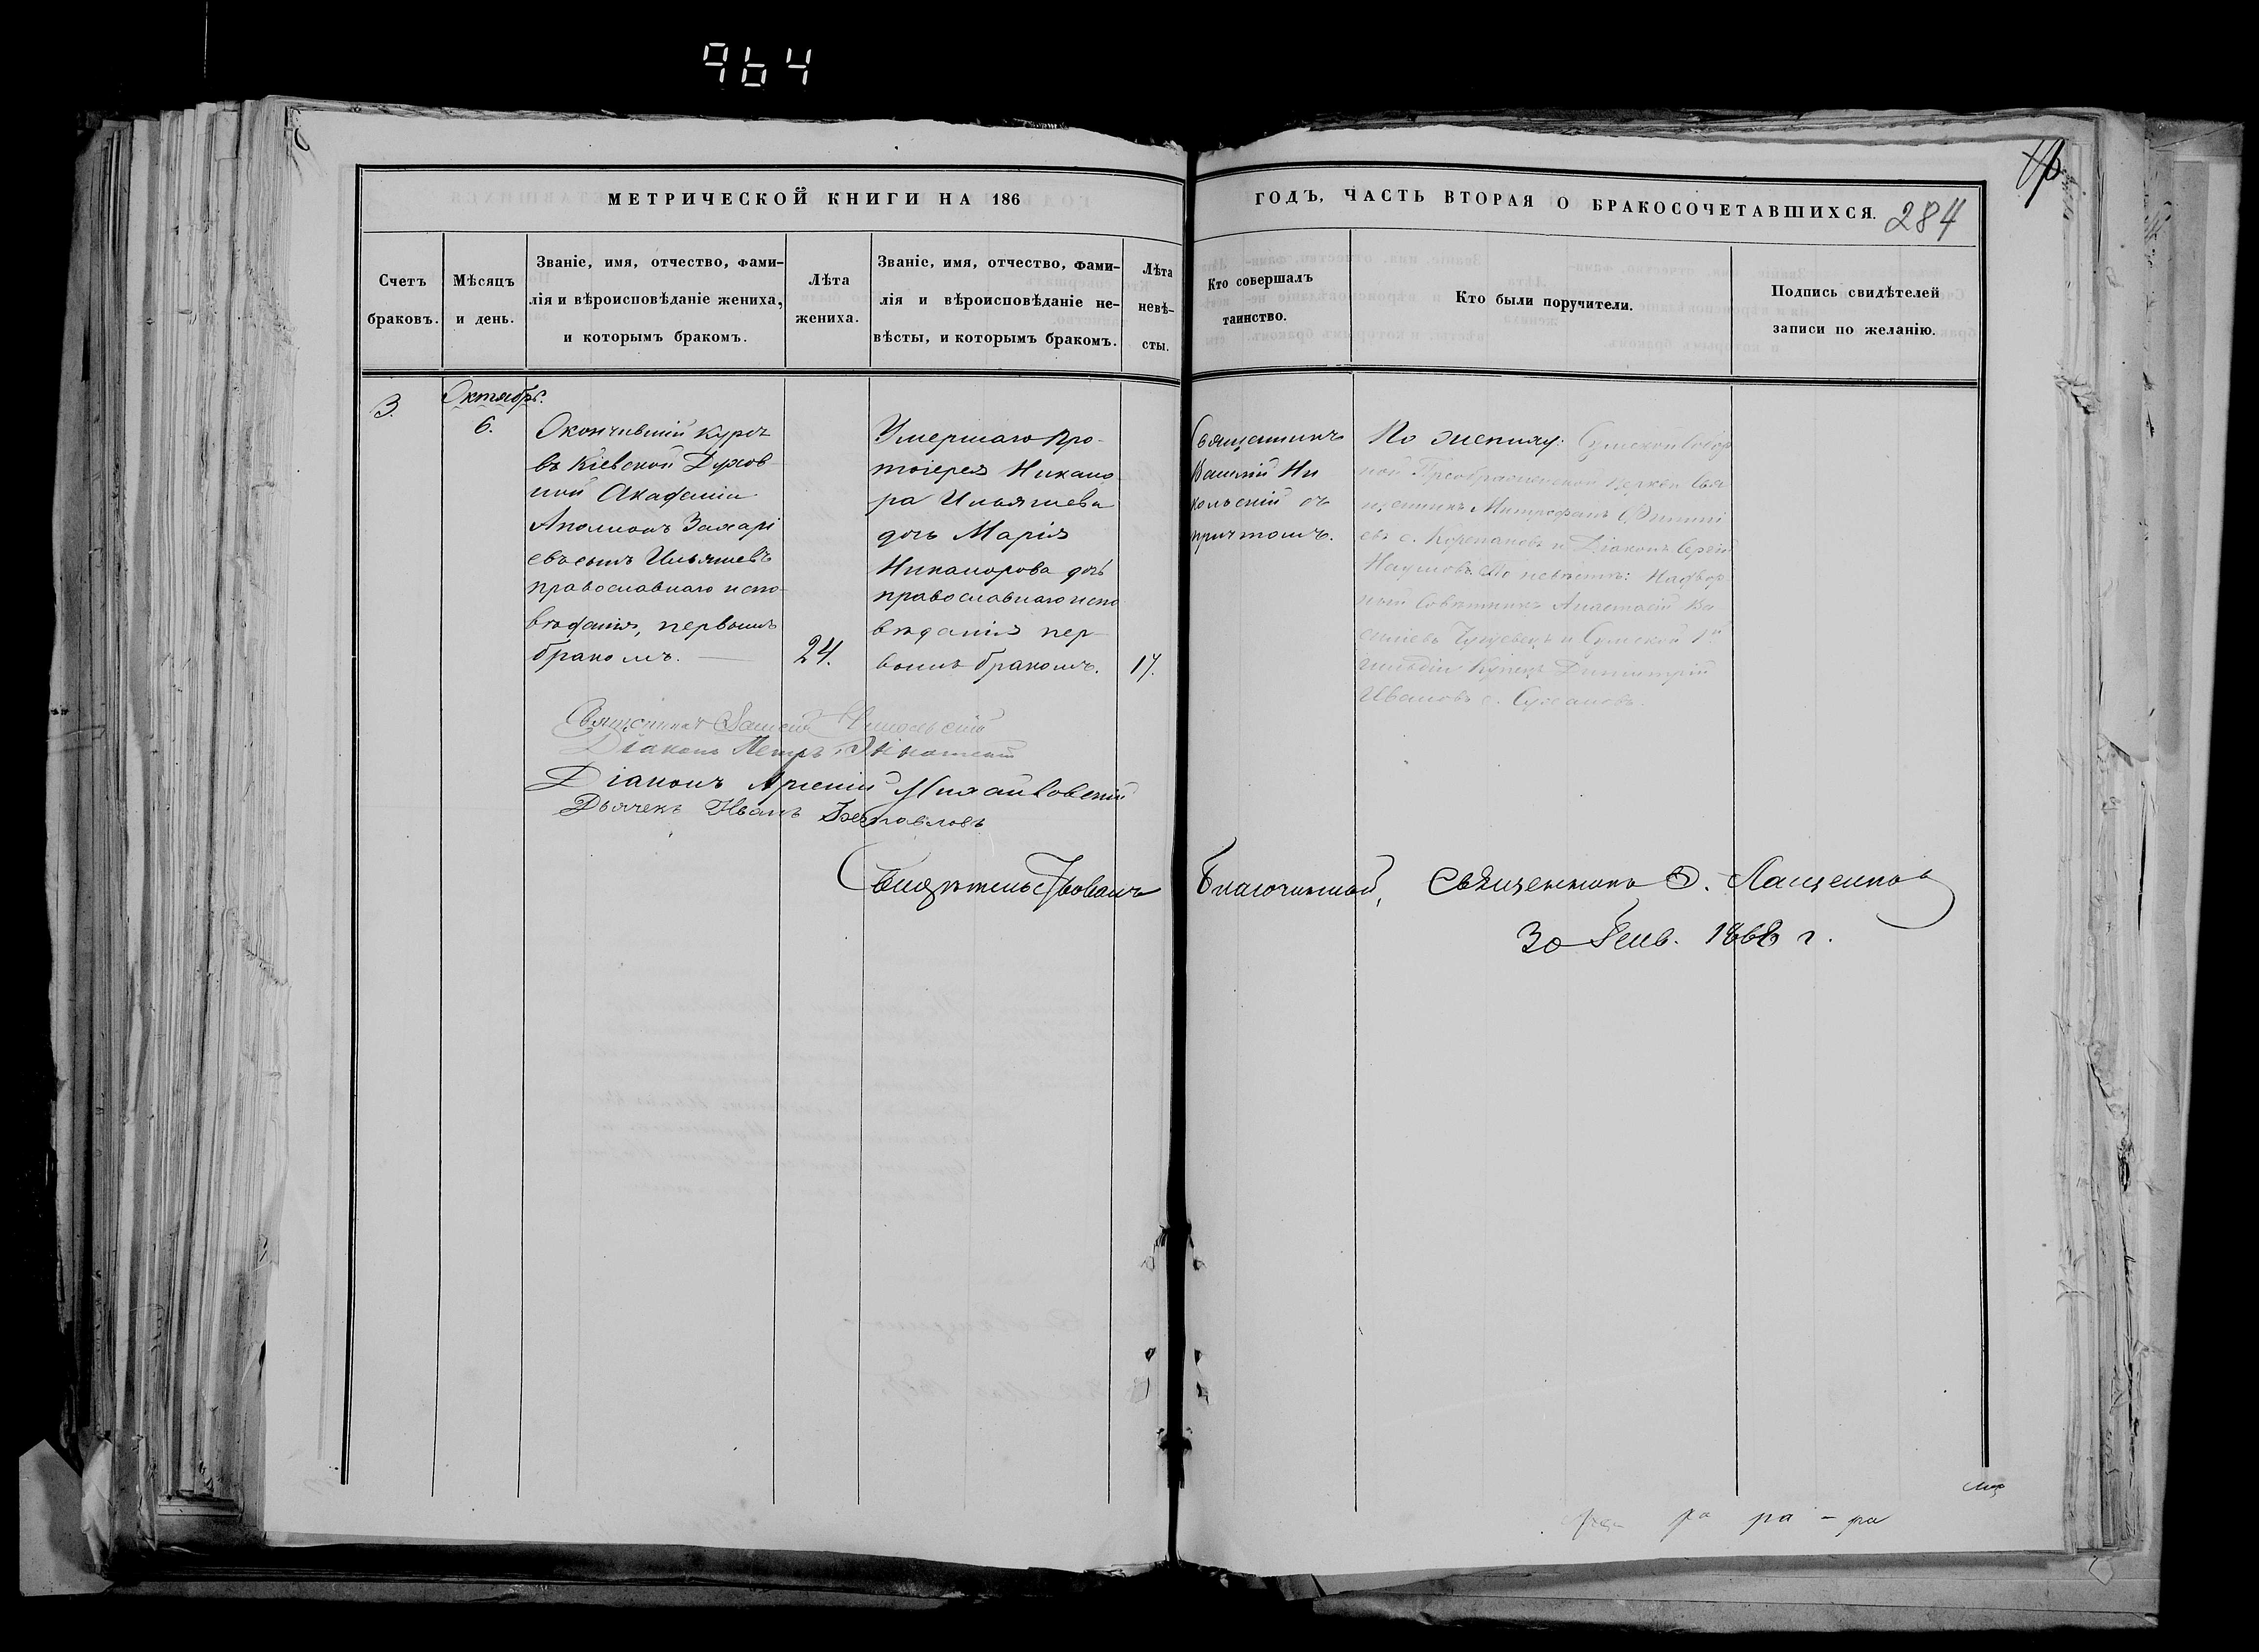 964
МЕТРИЧЕСКОЙ КНИГИ НА 186
ГОДЪ, ЧАСТЬ ВТОРАЯ О БРАКОСОЧЕТАВШИХСЯ.
284
Счетъ
браковъ.
Мѣсяцъ
и день.
Званіе, имя, отчество, фами-
лія и вѣроисповѣданіе жениха,
и которымъ бракомъ.
Лѣта
жениха.
Званіе, имя, отчество, фами-
лія и вѣроисповѣданіе не-
вѣсты, и которымъ бракомъ.
Лѣта
невѣ-
сты.
Кто совершалъ
таинство.
Кто были поручители.
Подпись свидѣтелей
записи по желанію.
3.
Октябрь.
6.
Окончившій курсъ
въ Кіевской Духов-
ной Академіи
Аполлонъ Захарі
евъ сынъ Ильяшевъ
православнаго испо-
вѣданія, первымъ
бракомъ.
24.
Умершаго Про-
тоіерея Никано
ра Ильяшева
дочь Марія
Никанорова дочь
православнаго испо
вѣданія пер-
вымъ бракомъ.
17.
Священникъ
Василій Ни
кольскій съ
причтомъ.
По жениху: Сумской Собор
ной Преображенской Церкви Свя
щенникъ Митрофанъ
евъ с. и Діаконъ Сергій
Наумовъ. По невѣстѣ: Надвор
ный Совѣтникъ Анастасій Ва
сильевъ и Сумской
гильдіи Купецъ Димитрій
Ивановъ с. Сухановъ.
Священникъ Василій Никольскій
Діаконъ Петръ
Діаконъ Арсеній
Дьячекъ Иванъ
Свидѣтельствовалъ Благочинный, Священникъ Лащенков
30 Генв. 1868 г.
ра ра - ра